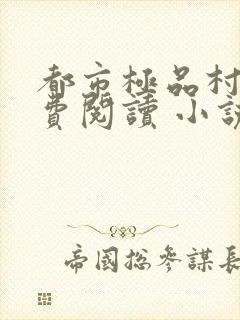 都市極品村
費閱讀 小說
帝國總參謀長